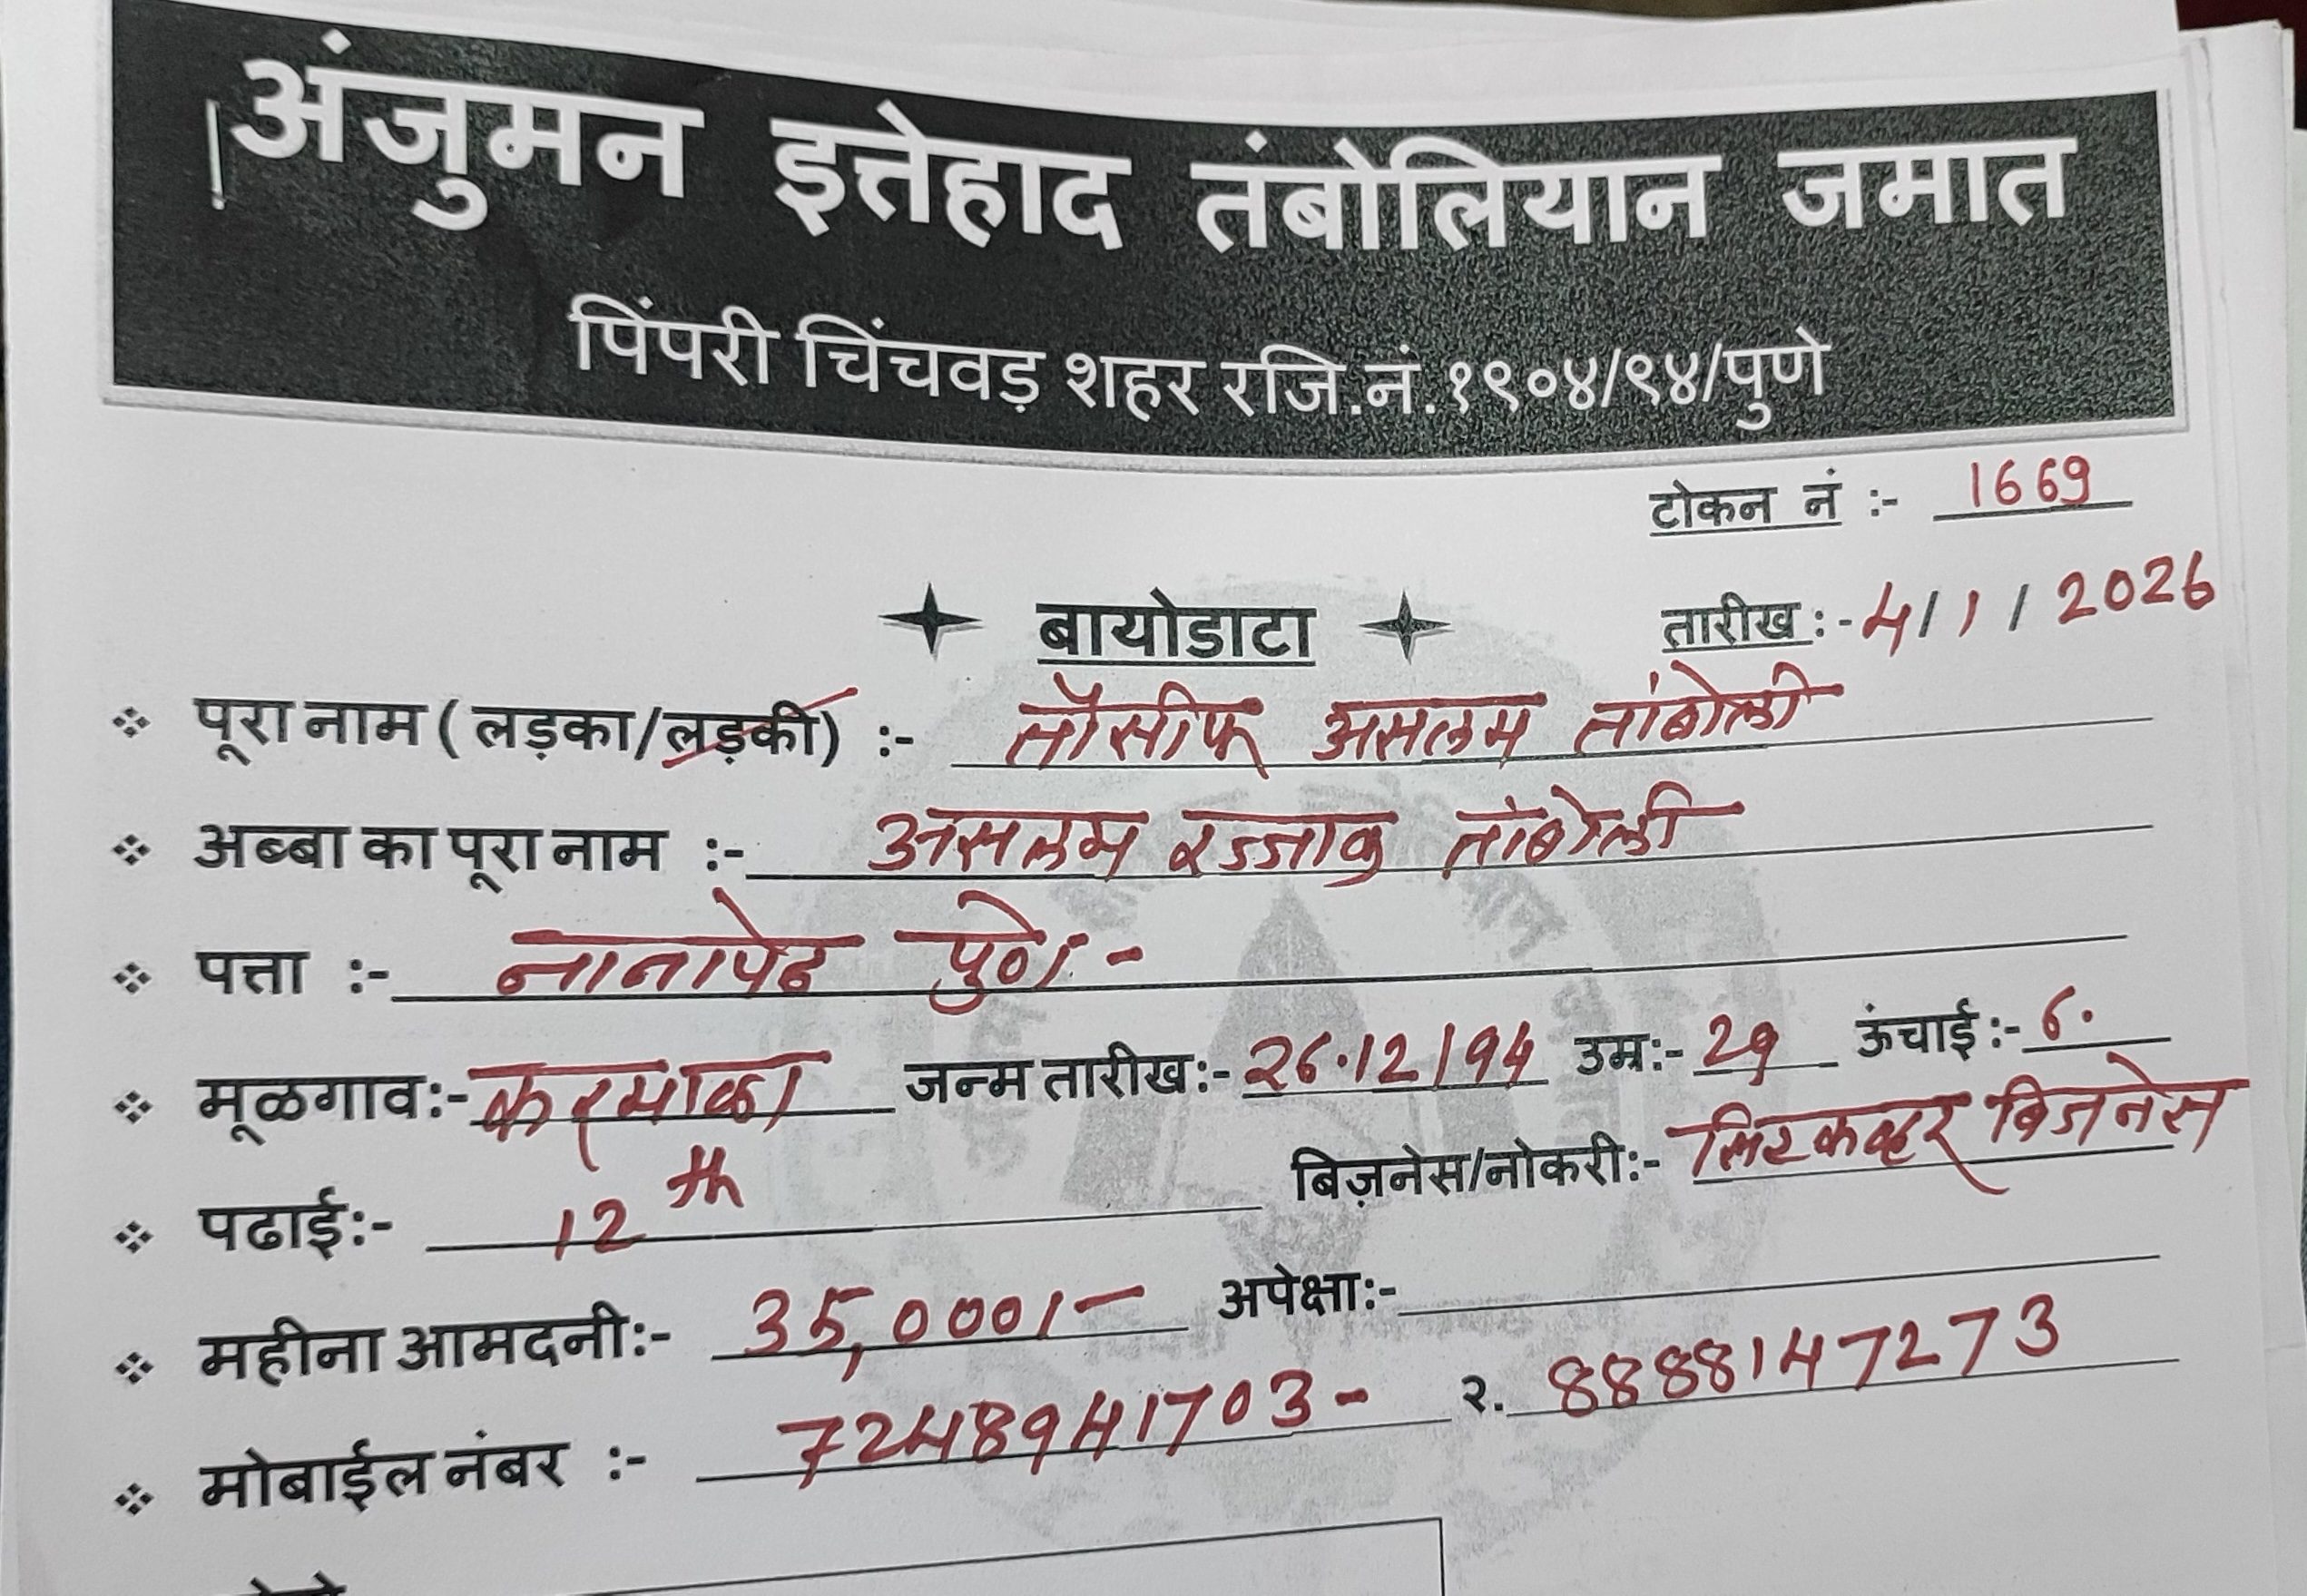 अंजुमन इत्तेहाद तंबोलियान जमात
पिंपरी चिंचवड़ शहर रजि.नं.१९०४/९४/पुणे
टोकन नं :- 1669
बायोडाटा
तारीख :- 4/1/2026
पूरा नाम ( लड़का/लड़की) :- तौसीफ असलम तांबोली
अब्बा का पूरा नाम :- असलम रज्जाक तांबोली
पत्ता :- नानापेठ पुणे -
मूळगाव:- करमाळा जन्म तारीख:- 26.12/94 उम्र:- 29 ऊंचाई:- 6.
पढाई:- 12th बिज़नेस/नोकरी:- बिजनेस
महीना आमदनी:- 35,000/- अपेक्षा:-
मोबाईल नंबर :- 7248941703 - २. 8888147273